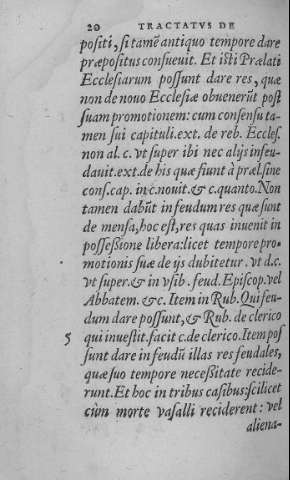 20 TRACTATVS DE
positi, si tamẽ antiquo tempore dare
præpositus consueuit. Et isti Prælati
Ecclesiarum possunt dare res, quæ
non de nouo Ecclesiæ obuenerũt post
suam promotionem: cum consensu ta-
men sui capituli.ext. de reb. Eccles.
non al. c. vt super ibi nec alijs infeu-
dauit.ext.de his quæ fiunt à præl.sine
cons.cap. in c.nouit.& c.quanto.Non
tamen dabũt in feudum res quæ sunt
de mensa, hoc est, res quas inuenit in
possessione libera:licet tempore pro-
motionis suæ de ijs dubitetur. vt d.c.
vt super.& in vsib. feud.Episcop.vel
Abbatem. &c. Item in Rub. Qui feu-
dum dare possunt, & Rub. de clerico
5 qui inuestit.facit c.de clerico.Item pos
sunt dare in feudũ illas res feudales,
quæ suo tempore necessitate recide-
runt.Et hoc in tribus casibus:scilicet
cùm morte vasalli reciderent: vel
aliena-